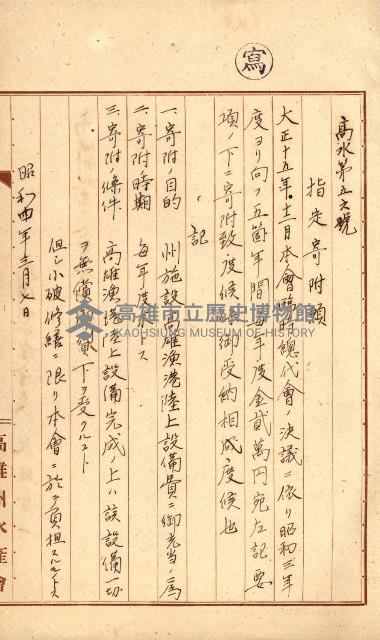 寫
高水第五六號
指定寄附願
大正十五年十二月本會臨時總代會ノ決議ニ依リ昭和二年
度ヨリ向フ五箇年間每年度金貳萬円宛左記要
項ノ下ニ寄附致度候御受納相成度候也
記
一、寄附ノ目的 州施設高雄漁港陸上設備費ニ御充当ノ為
二、寄附時期 每年度
三、寄附ノ條件 高雄漁港陸上設備完成ノ上ハ該設備一切
ヲ無償 貸下ヲ受クルコト
但シ小破修繕ニ限リ本會ニ於テ負担スルモノトス
昭和四年三月七日
高雄州水產會
高雄市立歷史博物館
KAOHSIUNG MUSEUM OF HISTORY